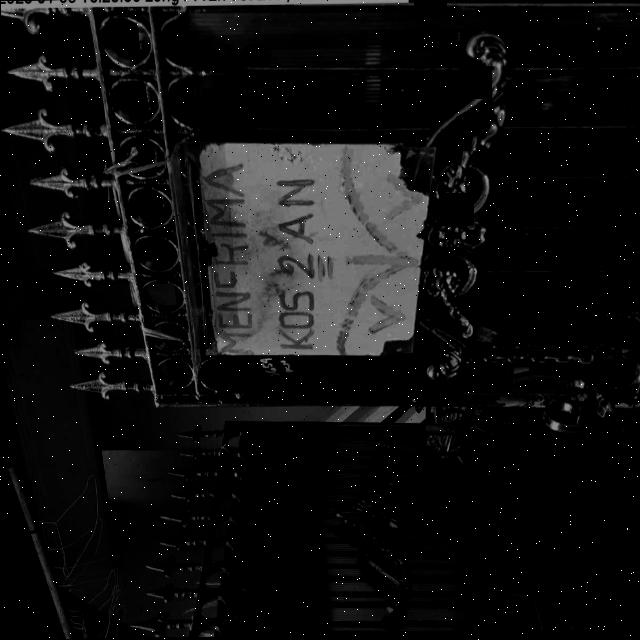 MENERIMA
KOS2AN